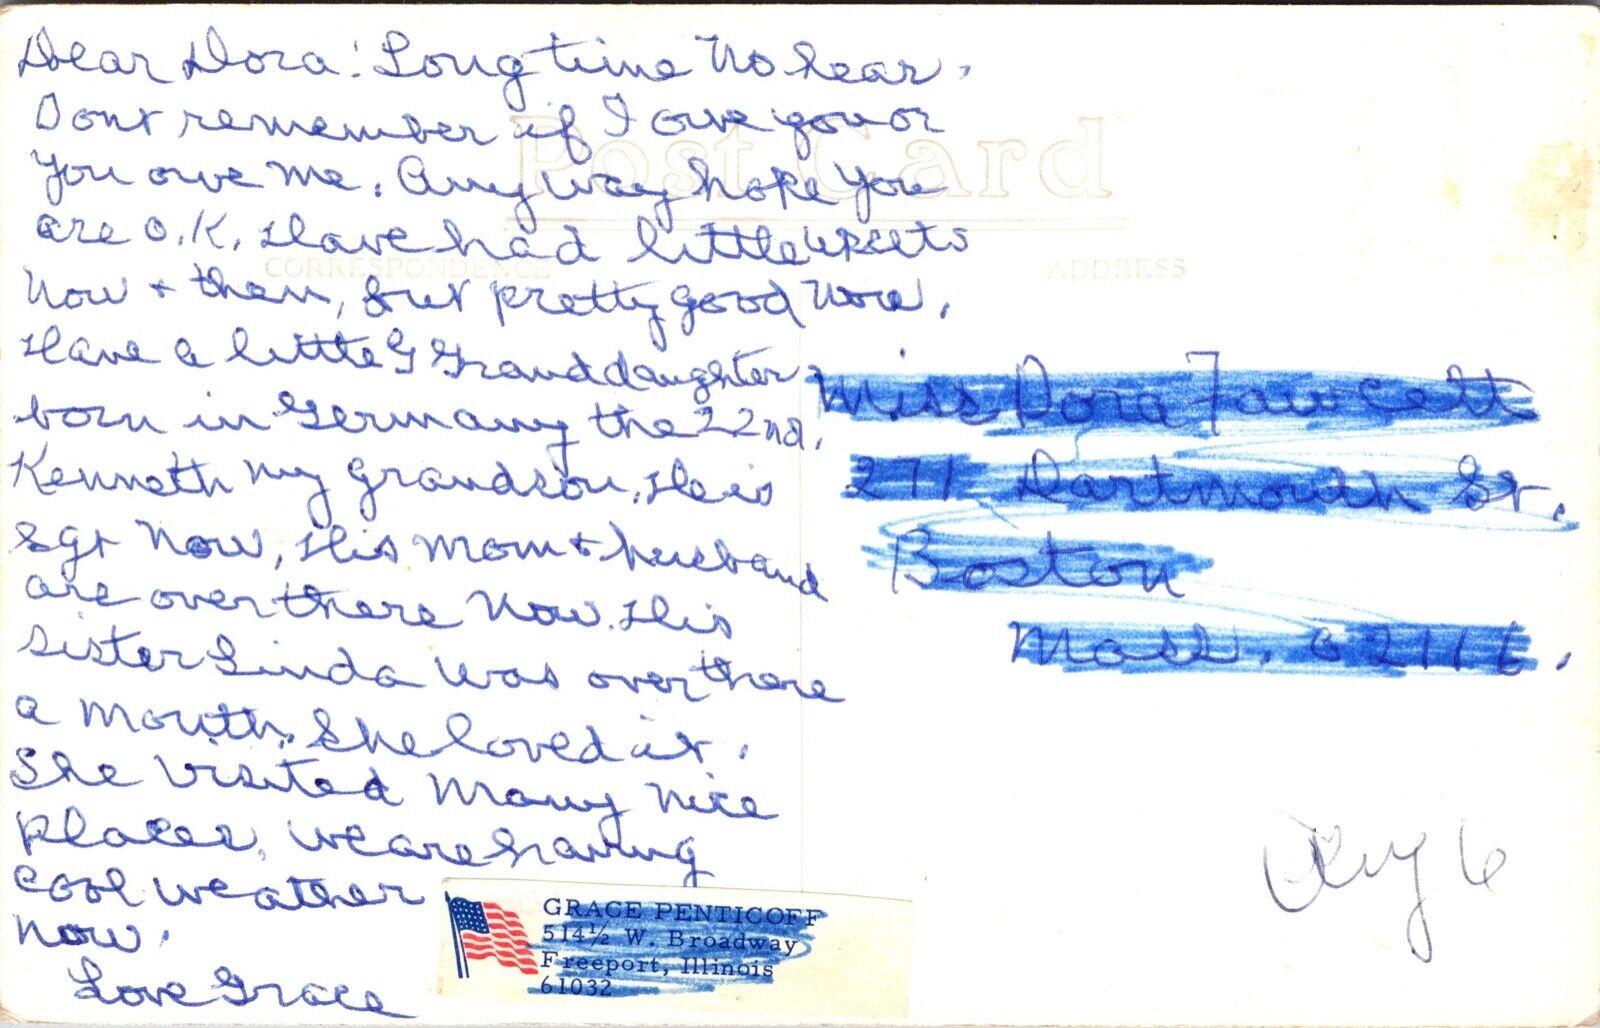 Dear Dora! Long time No hear.
Dont remember if I owe you or
You owe me. Any way hope You
are O.K. Have had little upsets
Now + then, but pretty good Now.
Have a little G Granddaughter
born in Germany the 22nd.
Kenneth my grandson. He is
Sgt Now, His Mom + husband
are over there Now. His
Sister Linda was over there
a Month. She loved it.
She Visited Many Nice
Places. We are having
cool weather
Now.
Love Grace
Post Card
CORRESPONDENCE
ADDRESS
Miss Dora Fawcett
271 Dartmouth St.
Boston
Mass. 02116.
Aug 6
GRACE PENTICOFF
514½ W. Broadway
Freeport, Illinois
61032